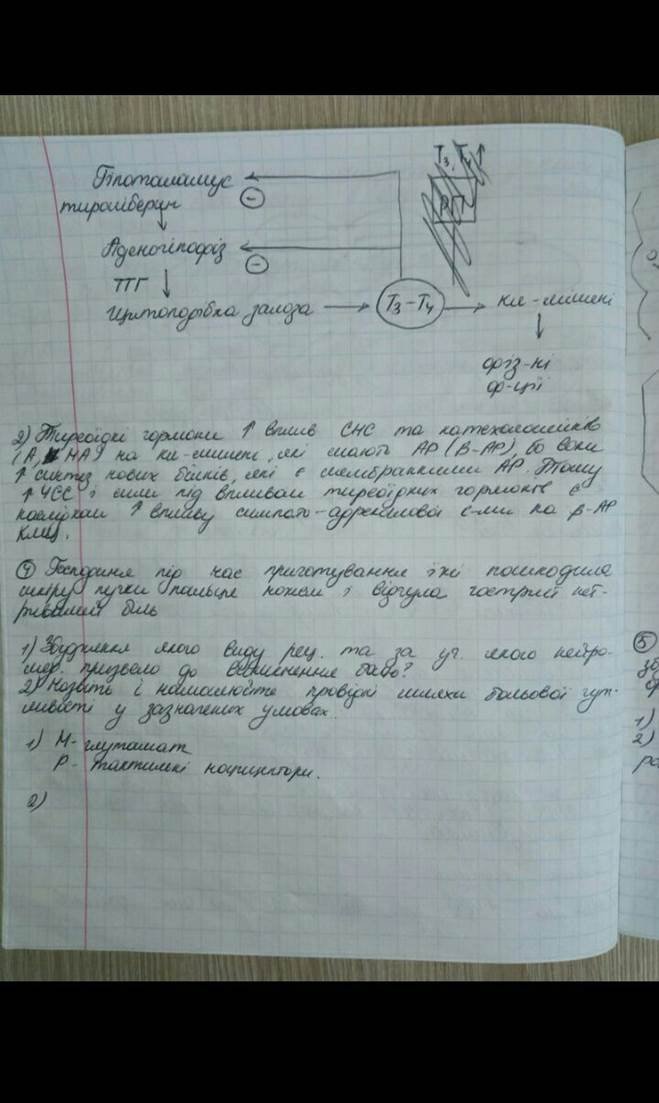 Гіпоталамус
тироліберин
Аденогіпофіз
ТТГ
Щитоподібна залоза
Т3-Т4
кл-мішені
фіз-ні
ф-ції
Т3, Т4↑
2) Тиреоїдні гормони ↑ вплив СНС та катехоламінів
(А, НА) на кл-мішені, які мають АР (β-АР), бо вони
↑ синтез нових білків, які є мембранними АР. Тому
↑ ЧСС і сили під впливом тиреоїдних гормонів є
наслідком ↑ впливу симпато-адреналової с-ми на β-АР
КМЦ.
4) Господиня під час приготування їжі пошкодила
шкіру пучки пальця ножем і відчула гострий нет-
ривалий біль
1) Збудження якого виду рец. та за уч. якого нейро-
мед. призвело до виникнення болю?
2) Назвіть і намалюйте провідні шляхи больової чут-
ливості у зазначених умовах.
1) М- глутамат
Р- тактильні ноцицептори.
2)
5
зб
1)
2)